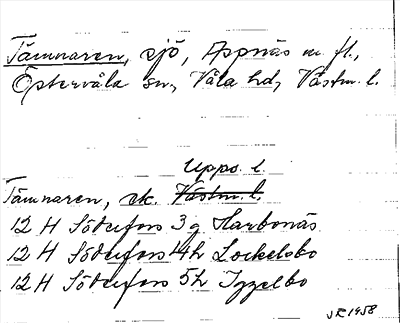 Tämnaren, sjö, Aspnäs m. fl.,
Östervåla sn, Våla hd, Västm. l.
Upps. l.
Tämnaren, ek. Västm. l.
12 H Söderfors 3 g Harbonäs
12 H Söderfors 4 h Lockelsbo
12 H Söderfors 5 h Iggelbo
JR 1958